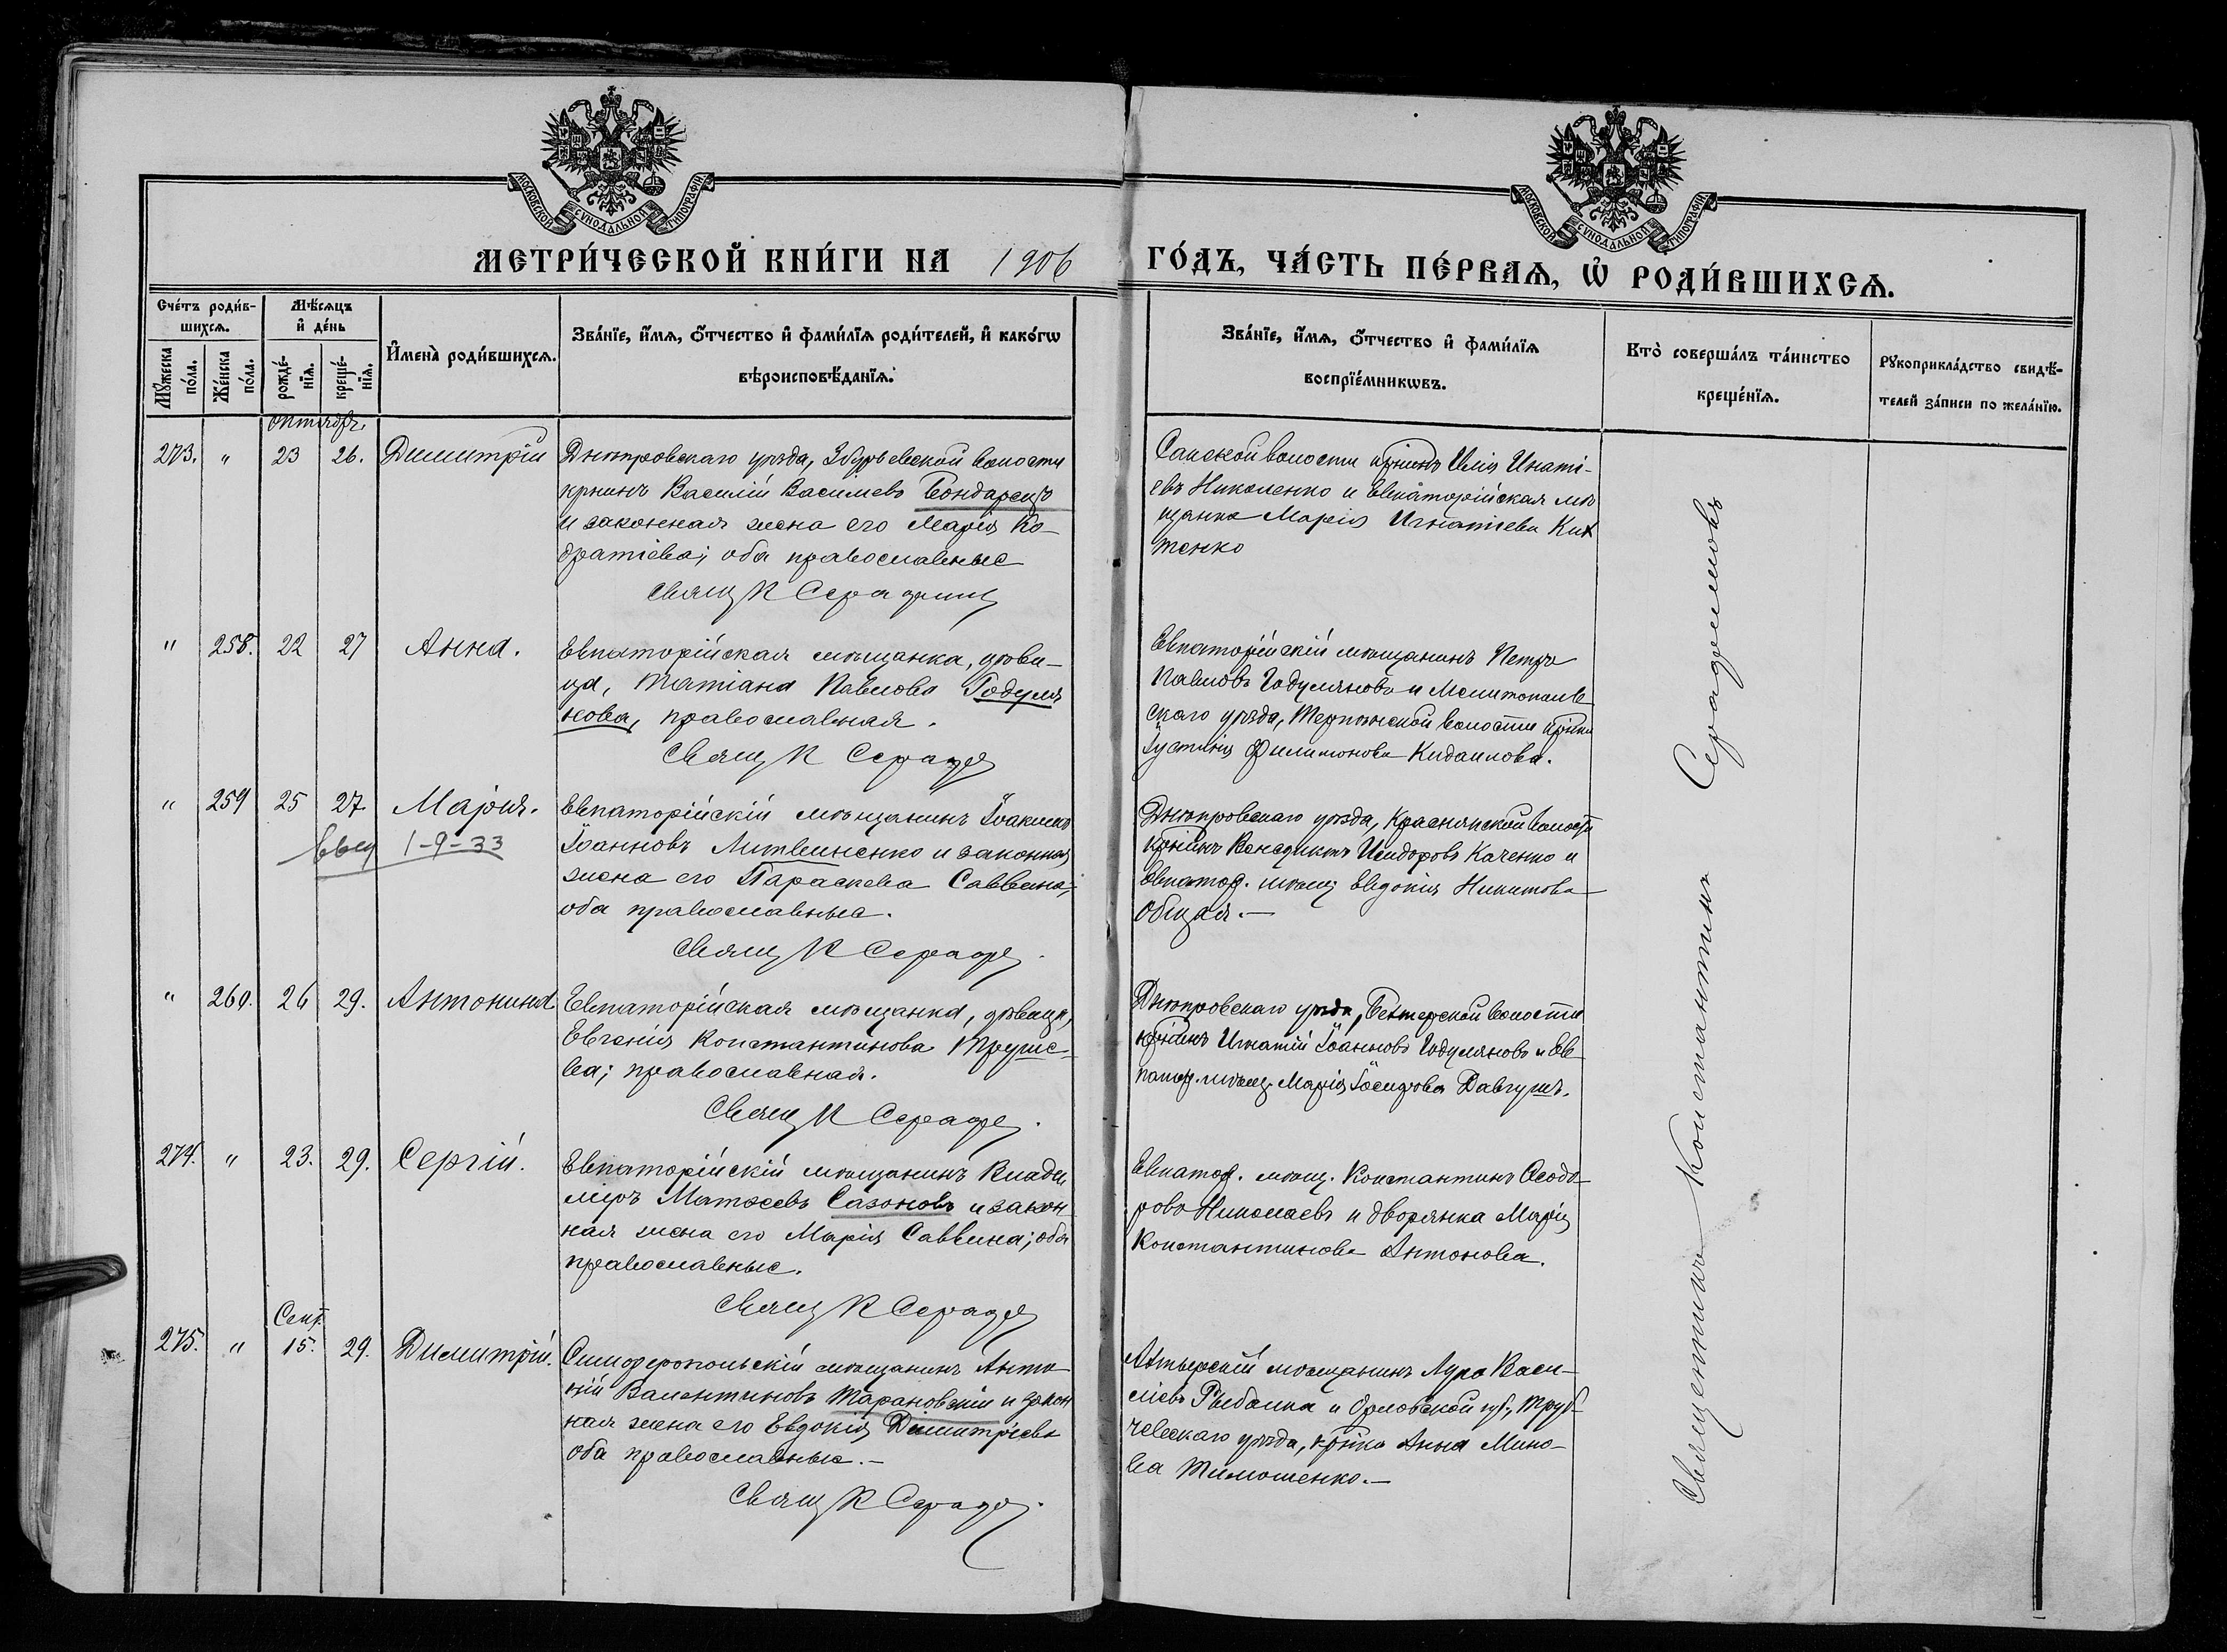 МОСКОВСКОЙ СѴНОДАЛЬНОЙ ТИПОГРАФІИ
МОСКОВСКОЙ СѴНОДАЛЬНОЙ ТИПОГРАФІИ
МЕТРИ́ЧЕСКОЙ КНИ́ГИ НА 1906 ГО́ДЪ, ЧА́СТЬ ПЕ́РВАѦ, Ѡ҆ РОДИ́ВШИХСѦ.
Сче́тъ роди́в-
шихсѧ.
Мꙋ́жеска по́ла.
Же́нска по́ла.
Мѣ́сѧцъ
и҆ де́нь
рожде́-нїѧ.
креще́-нїѧ.
И҆мена̀ роди́вшихсѧ.
Зва́нїе, и҆́мѧ, ѻ҆́тчество и҆ фами́лїѧ роди́телей, и҆ како́гѡ
вѣроисповѣ́данїѧ.
Зва́нїе, и҆́мѧ, ѻ҆́тчество и҆ фами́лїѧ
воспрїе́мникѡвъ.
Кто̀ соверша́лъ та́инство
креще́нїѧ.
Рꙋкоприкла́дство свидѣ́-
телей за́писи по жела́нїю.
Октября.
273. " 23 26. Димитрій
Днѣпровскаго уѣзда, Збурьевской волости
крнинъ Василій Васильевъ Бондарецъ
и законная жена его Марія Ко-
дратіева; оба православные
Свящ К Серафим
Сакской волости крнинъ Илія Игнаті-
евъ Николенко и Евпаторійская мѣ
щанка Марія Игнатіева Ких
тенко
" 258. 22 27 Анна.
Евпаторійская мѣщанка, дѣви-
ца, Татіана Павлова Годуля
нова, православная.
Свящ К Сераф
Евпаторійскій мѣщанинъ Петръ
Павловъ Годуляновъ и Мелитополь
скаго уѣзда, Терпѣнской волости крнка
Іустинія Филимонова Кидалова.
" 259 25 27. Марія.
1-9-33
Евпаторійскій мѣщанинъ Іоакимъ
Іоанновъ Литвиненко и законная
жена его Параскева Саввина;
оба православные.
Свящ К Сераф.
Днѣпровскаго уѣзда, Краснянской волости
крнинъ Венедиктъ Исидоровъ Каченко и
Евпатор. мѣщ. Евдокія Никитова
Общая.—
" 260. 26 29. Антонина.
Евпаторійская мѣщанка, дѣвица,
Евгенія Константинова Труше-
ва; православная.
Свящ К Сераф.
Днѣпровскаго уѣзда, Бехтерской волости
крнинъ Игнатій Іоанновъ Годуляновъ и Ев
патор. мѣщ. Марія Іосифова Давгушъ.
274. " 23. 29. Сергій.
Евпаторійскій мѣщанинъ Влади
міръ Матѳеевъ Сазоновъ и закон
ная жена его Марія Саввина; оба
православные.
Свящ К Сераф
Евпатор. мѣщ. Константинъ Ѳеодо-
ровъ Николаевъ и дворянка Марія
Константинова Антонова.
Сент.
275. " 15. 29. Димитрій.
Симферопольскій мѣщанинъ Анто-
ній Валентиновъ Тарановскій и закон
ная жена его Евдокія Димитріева
оба православные.—
Свящ К Сераф.
Ахтырскій мѣщанинъ Лука Васи-
ліевъ Рыбалка и Орловской губ, Труб-
чевскаго уѣзда, крнка Анна Мино-
ва Тимошенко.—
Священникъ Константинъ Серафимовъ